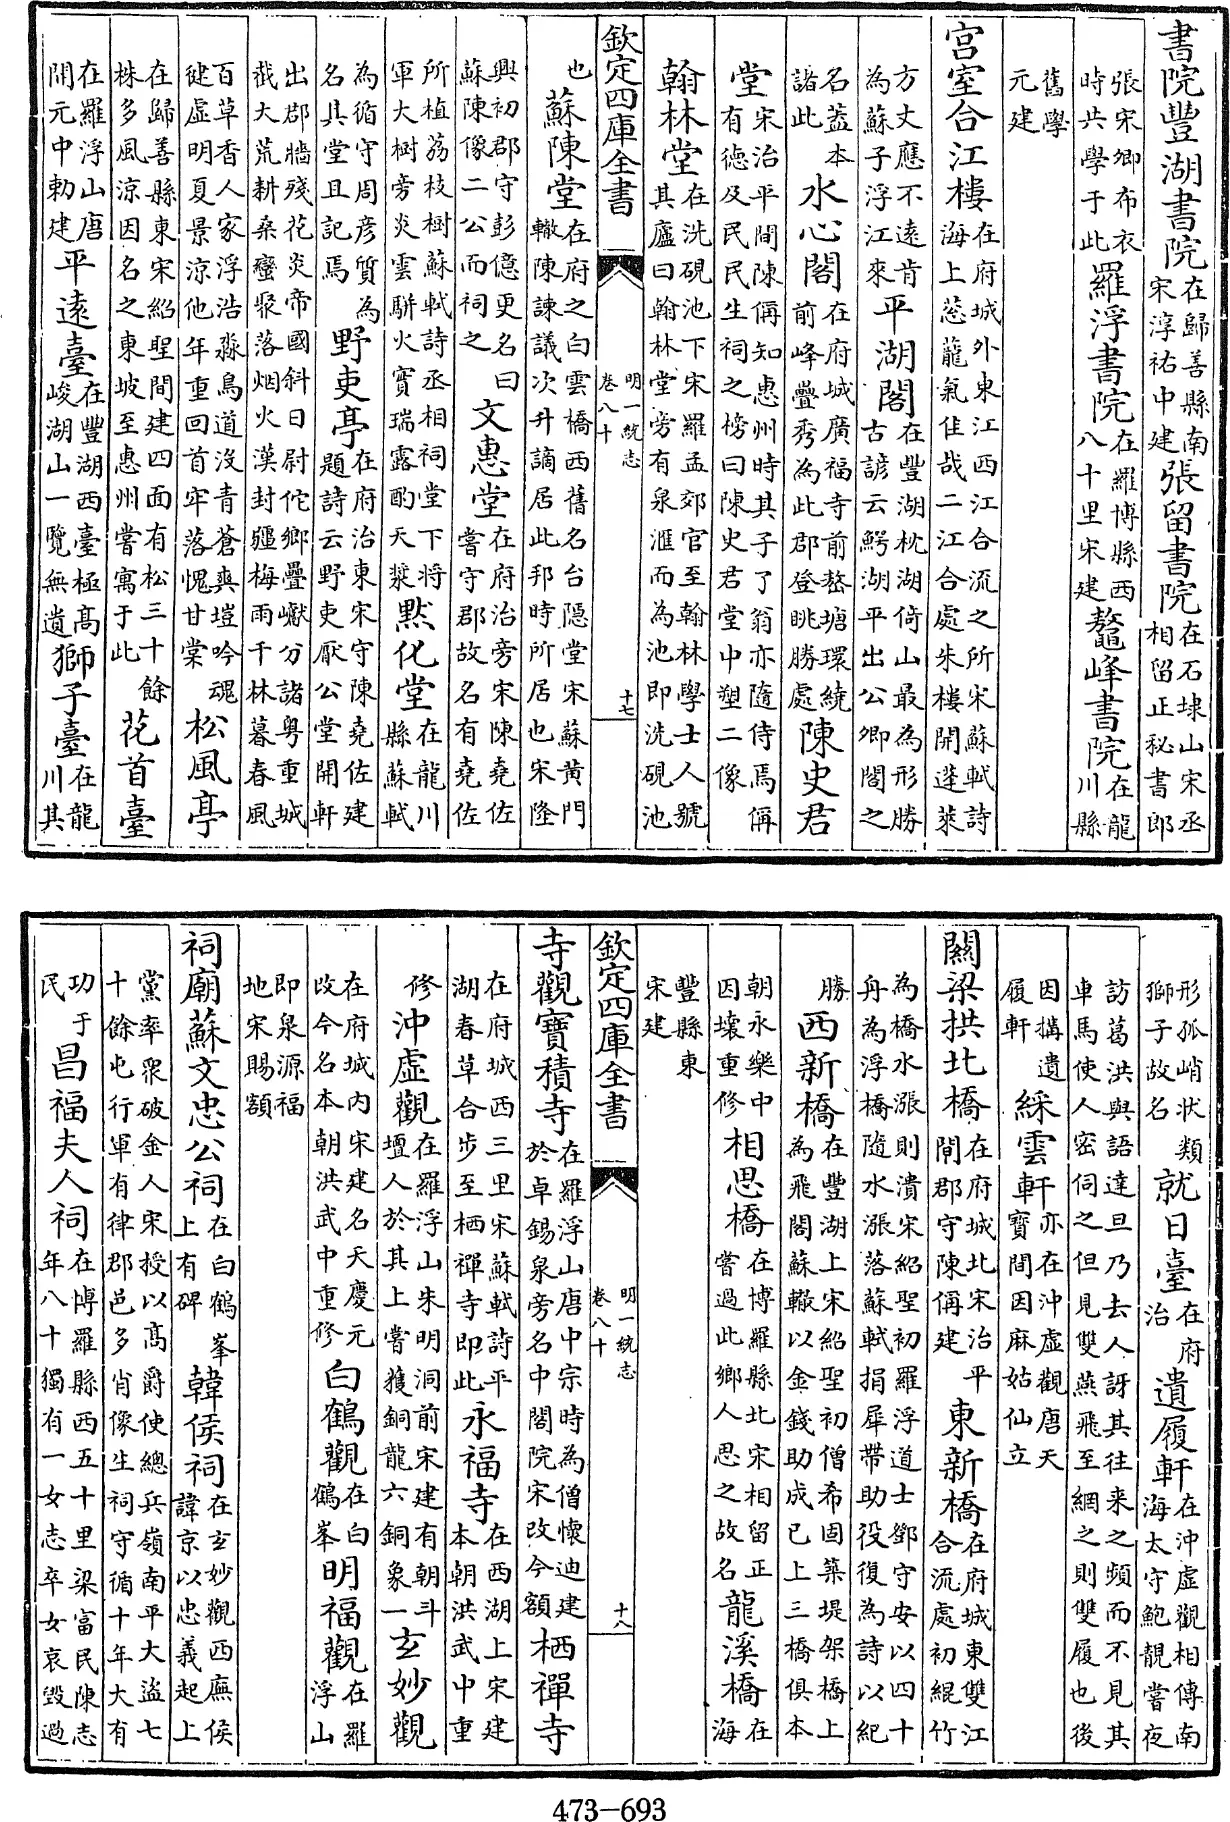 書院豐湖書院在歸善縣南宋淳祐中建張留書院在石埭山宋丞相留正秘書郎
張宋卿布衣時共學于此羅浮書院在羅博縣西八十里宋建鼇峰書院在龍川縣
舊學元建
宫室合江樓在府城外東江西江合流之所宋蘇軾詩海上葱蘢氣佳哉二江合處朱樓開蓬萊
方丈應不遠肯為蘇子浮江來平湖閣在豐湖枕湖倚山最為形勝古諺云鰐湖平出公卿閣之
名盖本諸此水心閣在府城廣福寺前嶅塘環繞前峰疊秀為此郡登眺勝處陳史君
堂宋治平間陳偁知惠州時其子了翁亦隨侍焉偁有徳及民民生祠之榜曰陳史君堂中塑二像
翰林堂在洗硯池下宋羅孟郊官至翰林學士人號其廬曰翰林堂旁有泉滙而為池即洗硯池
欽定四庫全書 明一統志 卷八十 十七
也蘇陳堂在府之白雲橋西舊名台隠堂宋蘇黄門轍陳諫議次升謫居此邦時所居也宋隆
興初郡守彭億更名曰蘇陳像二公而祠之文惠堂在府治旁宋陳堯佐嘗守郡故名有堯佐
所植荔枝樹蘇軾詩丞相祠堂下將軍大樹旁炎雲駢火實瑞露酌天漿黙化堂在龍川縣蘇軾
為循守周彦質為名具堂且記焉野吏亭在府治東宋守陳堯佐建題詩云野吏厭公堂開軒
出郡牆殘花炎帝國斜日尉佗鄉疊巘分諸粤重城截大荒耕桑蠻聚落烟火漢封疆梅雨千林暮春風
百草香人家浮浩淼鳥道沒青蒼爽塏吟魂徤虚明夏景涼他年重回首牢落愧甘棠松風亭
在歸善縣東宋紹聖間建四面有松三十餘株多風涼因名之東坡至惠州嘗寓于此花首臺
在羅浮山唐開元中勅建平逺臺在豐湖西臺極高峻湖山一覽無遺獅子臺在龍川其
形孤峭狀類獅子故名就日臺在府治遺履軒在沖虛觀相傳南海太守鮑靚嘗夜
訪葛洪與語達旦乃去人訝其往来之頻而不見其車馬使人密伺之但見雙燕飛至網之則雙履也後
因搆遺履軒綵雲軒亦在沖虛觀唐天寶間因麻姑仙立
關梁拱北橋在府城北宋治平間郡守陳偁建東新橋在府城東雙江合流處初緄竹
為橋水漲則潰宋紹聖初羅浮道士鄧守安以四十舟為浮橋隨水漲落蘇軾捐犀帶助役復為詩以紀
勝西新橋在豐湖上宋紹聖初僧希固築堤架橋上為飛閣蘇轍以金錢助成已上三橋俱本
朝永樂中因壞重修相思橋在博羅縣北宋相留正嘗過此鄉人思之故名龍溪橋在海
豐縣東宋建
欽定四庫全書 明一統志 卷八十 十八
寺觀寶積寺在羅浮山唐中宗時為僧懷迪建於卓錫泉旁名中閣院宋改今額栖禪寺
在府城西三里宋蘇軾詩平湖春草合步至栖禪寺即此永福寺在西湖上宋建本朝洪武中重
修沖虛觀在羅浮山朱明洞前宋建有朝斗壇人於其上嘗獲銅龍六銅象一玄妙觀
在府城内宋建名天慶元改今名本朝洪武中重修白鶴觀在白鶴峯明福觀在羅浮山
即泉源福地宋賜額
祠廟蘇文忠公祠在白鶴峯上有碑韓侯祠在玄妙觀西廡侯諱京以忠義起上
黨率衆破金人宋授以高爵使總兵嶺南平大盗七十餘屯行軍有律郡邑多肖像生祠守循十年大有
功于民昌福夫人祠在博羅縣西五十里梁富民陳志年八十獨有一女志卒女哀毁過
473-693